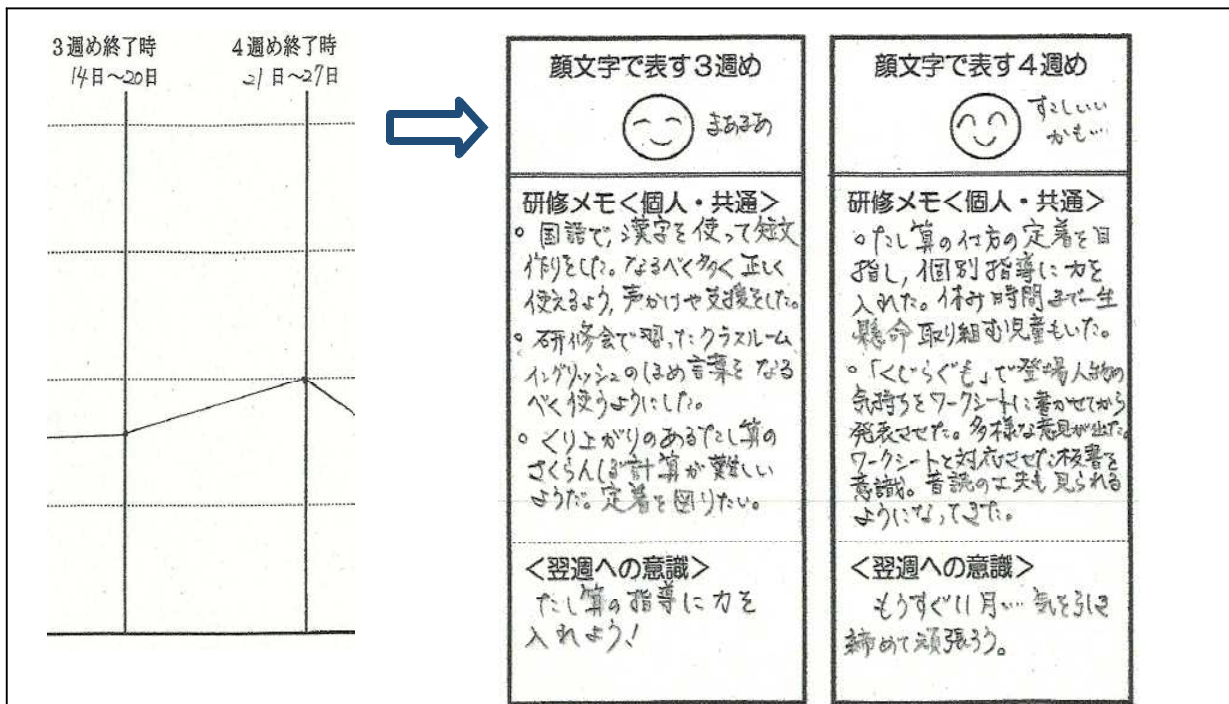 3週め終了時
14日～20日
4週め終了時
21日～27日
顔文字で表す3週め
まあまあ
研修メモ＜個人・共通＞
。国語で、漢字を使って短文
作りをした。なるべく多く正しく
使えるよう、声かけや支援をした。
。研修会で習ったクラスルーム
イングリッシュのほめ言葉をなる
べく使うようにした。
。くり上がりのあるたし算の
さくらんぼ計算が難しい
ようだ。定着を図りたい。
＜翌週への意識＞
たし算の指導に力を
入れよう！
顔文字で表す4週め
すこしいい
かも…
研修メモ＜個人・共通＞
。たし算の仕方の定着を目
指し、個別指導に力を
入れた。休み時間まで一生
懸命取り組む児童もいた。
。「くじらぐも」で登場人物の
気持ちをワークシートに書かせてから
発表させた。多様な意見が出た。
ワークシートと対応させた板書を
意識。音読の工夫も見られる
ようになってきた。
＜翌週への意識＞
もうすぐ11月…気を引き
締めて頑張ろう。